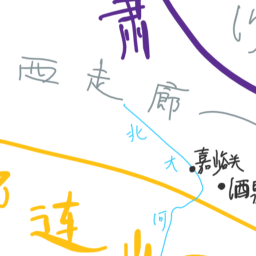 肃
西走廊
北大河
嘉峪关
酒泉
连